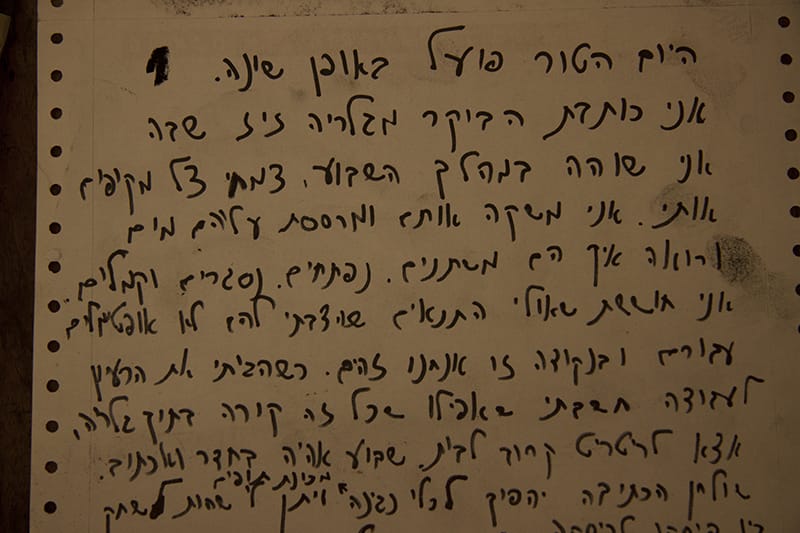 היום הטור פועל באופן שינה.
אני כותבת הביקר מגלריה זיז שבה
אני שוהה במהלך השבוע. צמחי צל מקיפים
אותי. אני משקה אותם ומרססת עליהם מים
ורואה איך הם משתנים. נפתחים. נסגרים וקמלים.
אני חוששת שאולי התנאים שיצבתי להם לא אופטימלים
עבורם ובנקודה זו אנחנו זהים. כשהגיתי את הרעיון
לעבודה חשבתי שאפילו שכל זה קורה בתוך גלריה,
אצא לריטריט קרוב לבית. שבוע אהיה בחדר ואכתוב.
מכונת תופים
שולחן הכתיבה יהפוך לכלי נגינה ויתן לי שהות לשחק